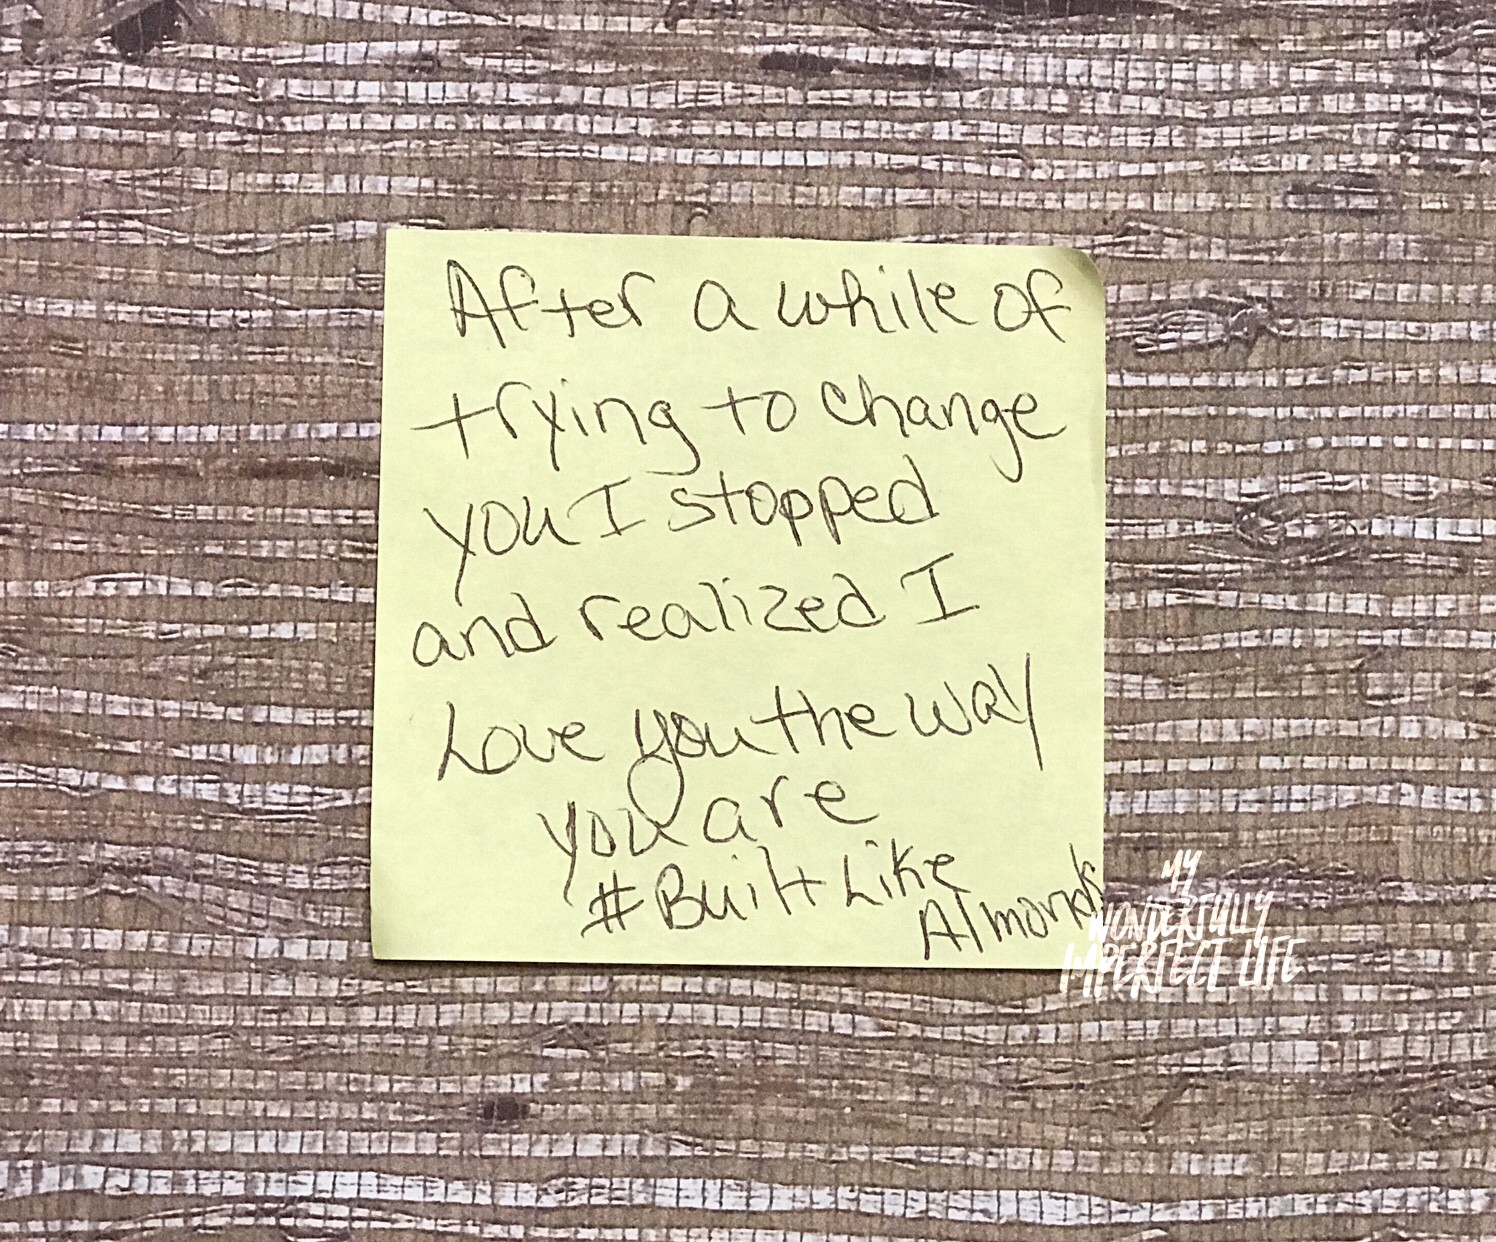 After a while of
trying to change
you I stopped
and realized I
Love you the way
you are
#Built Like
Almonds
MY
WONDERFULLY
IMPERFECT LIFE